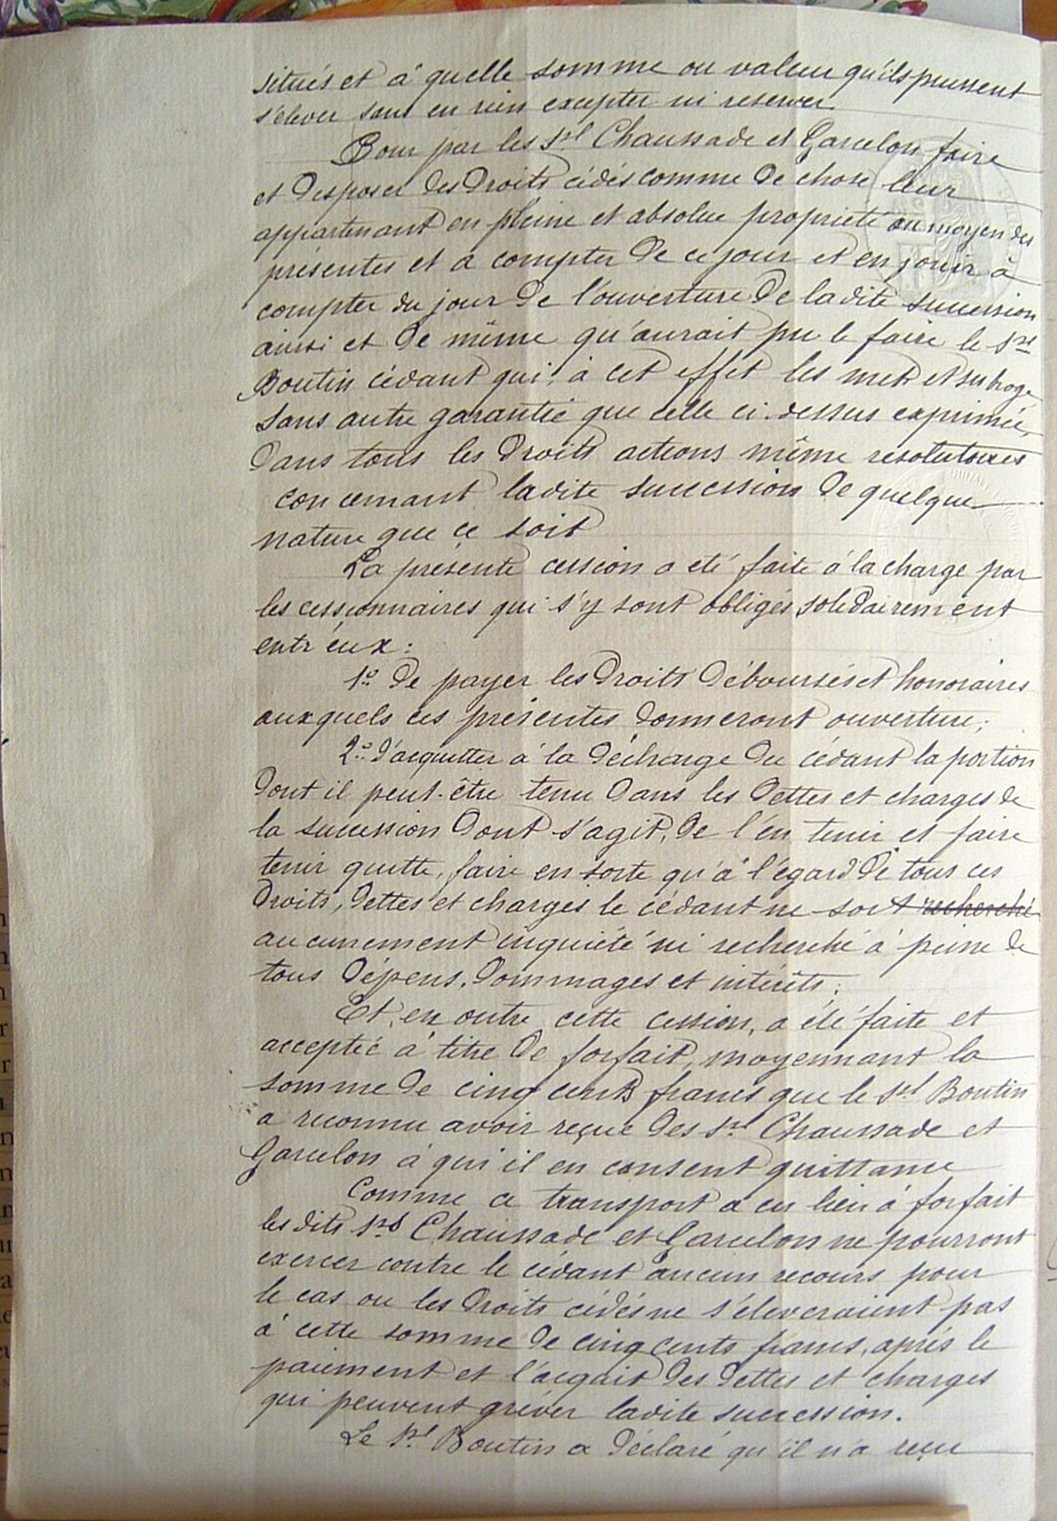 situés et à quelle somme ou valeur qu'ils puissent
s'élever sans en rien excepter ni reserver.
Pour par les Srs Chaussade et Garcelon faire
et disposer des droits cédés comme de chose leur
appartenant en pleine et absolue propriété au moyen des
présentes et à compter de ce jour et en jouir à
compter du jour de l'ouverture de la dite succession
ainsi et de même qu'aurait pu le faire le Sr
Boutin cédant qui, à cet effet les met et subroge
sans autre garantie que celle ci-dessus exprimée,
dans tous les droits actions même résolutoires
concernant ladite succession de quelque
nature que ce soit
La présente cession a été faite à la charge par
les cessionnaires qui s'y sont obligés solidairement
entr'eux :
1º De payer les droits déboursés et honoraires
auxquels ces présentes donneront ouverture ;
2º d'acquitter à la décharge du cédant la portion
dont il peut-être tenu dans les dettes et charges de
la succession dont s'agit, de l'en tenir et faire
tenir quitte, faire en sorte qu'à l'égard de tous ces
droits, dettes et charges le cédant ne soit recherché
aucunement inquiété ni recherché à peine de
tous dépens, dommages et intérêts.
Et, en outre cette cession, a été faite et
acceptée à titre de forfait, moyennant la
somme de cinq cents francs que le Sr Boutin
a reconnu avoir reçue des Srs Chaussade et
Garcelon à qui il en consent quittance
Comme ce transport a eu lieu à forfait
les dits Srs Chaussade et Garcelon ne pourront
exercer contre le cédant aucun recours pour
le cas ou les droits cédés ne s'éleveraient pas
à cette somme de cinq cents francs, après le
paiement et l'acquit des dettes et charges
qui peuvent gréver ladite succession.
Le Sr Boutin a déclaré qu'il n'a reçu